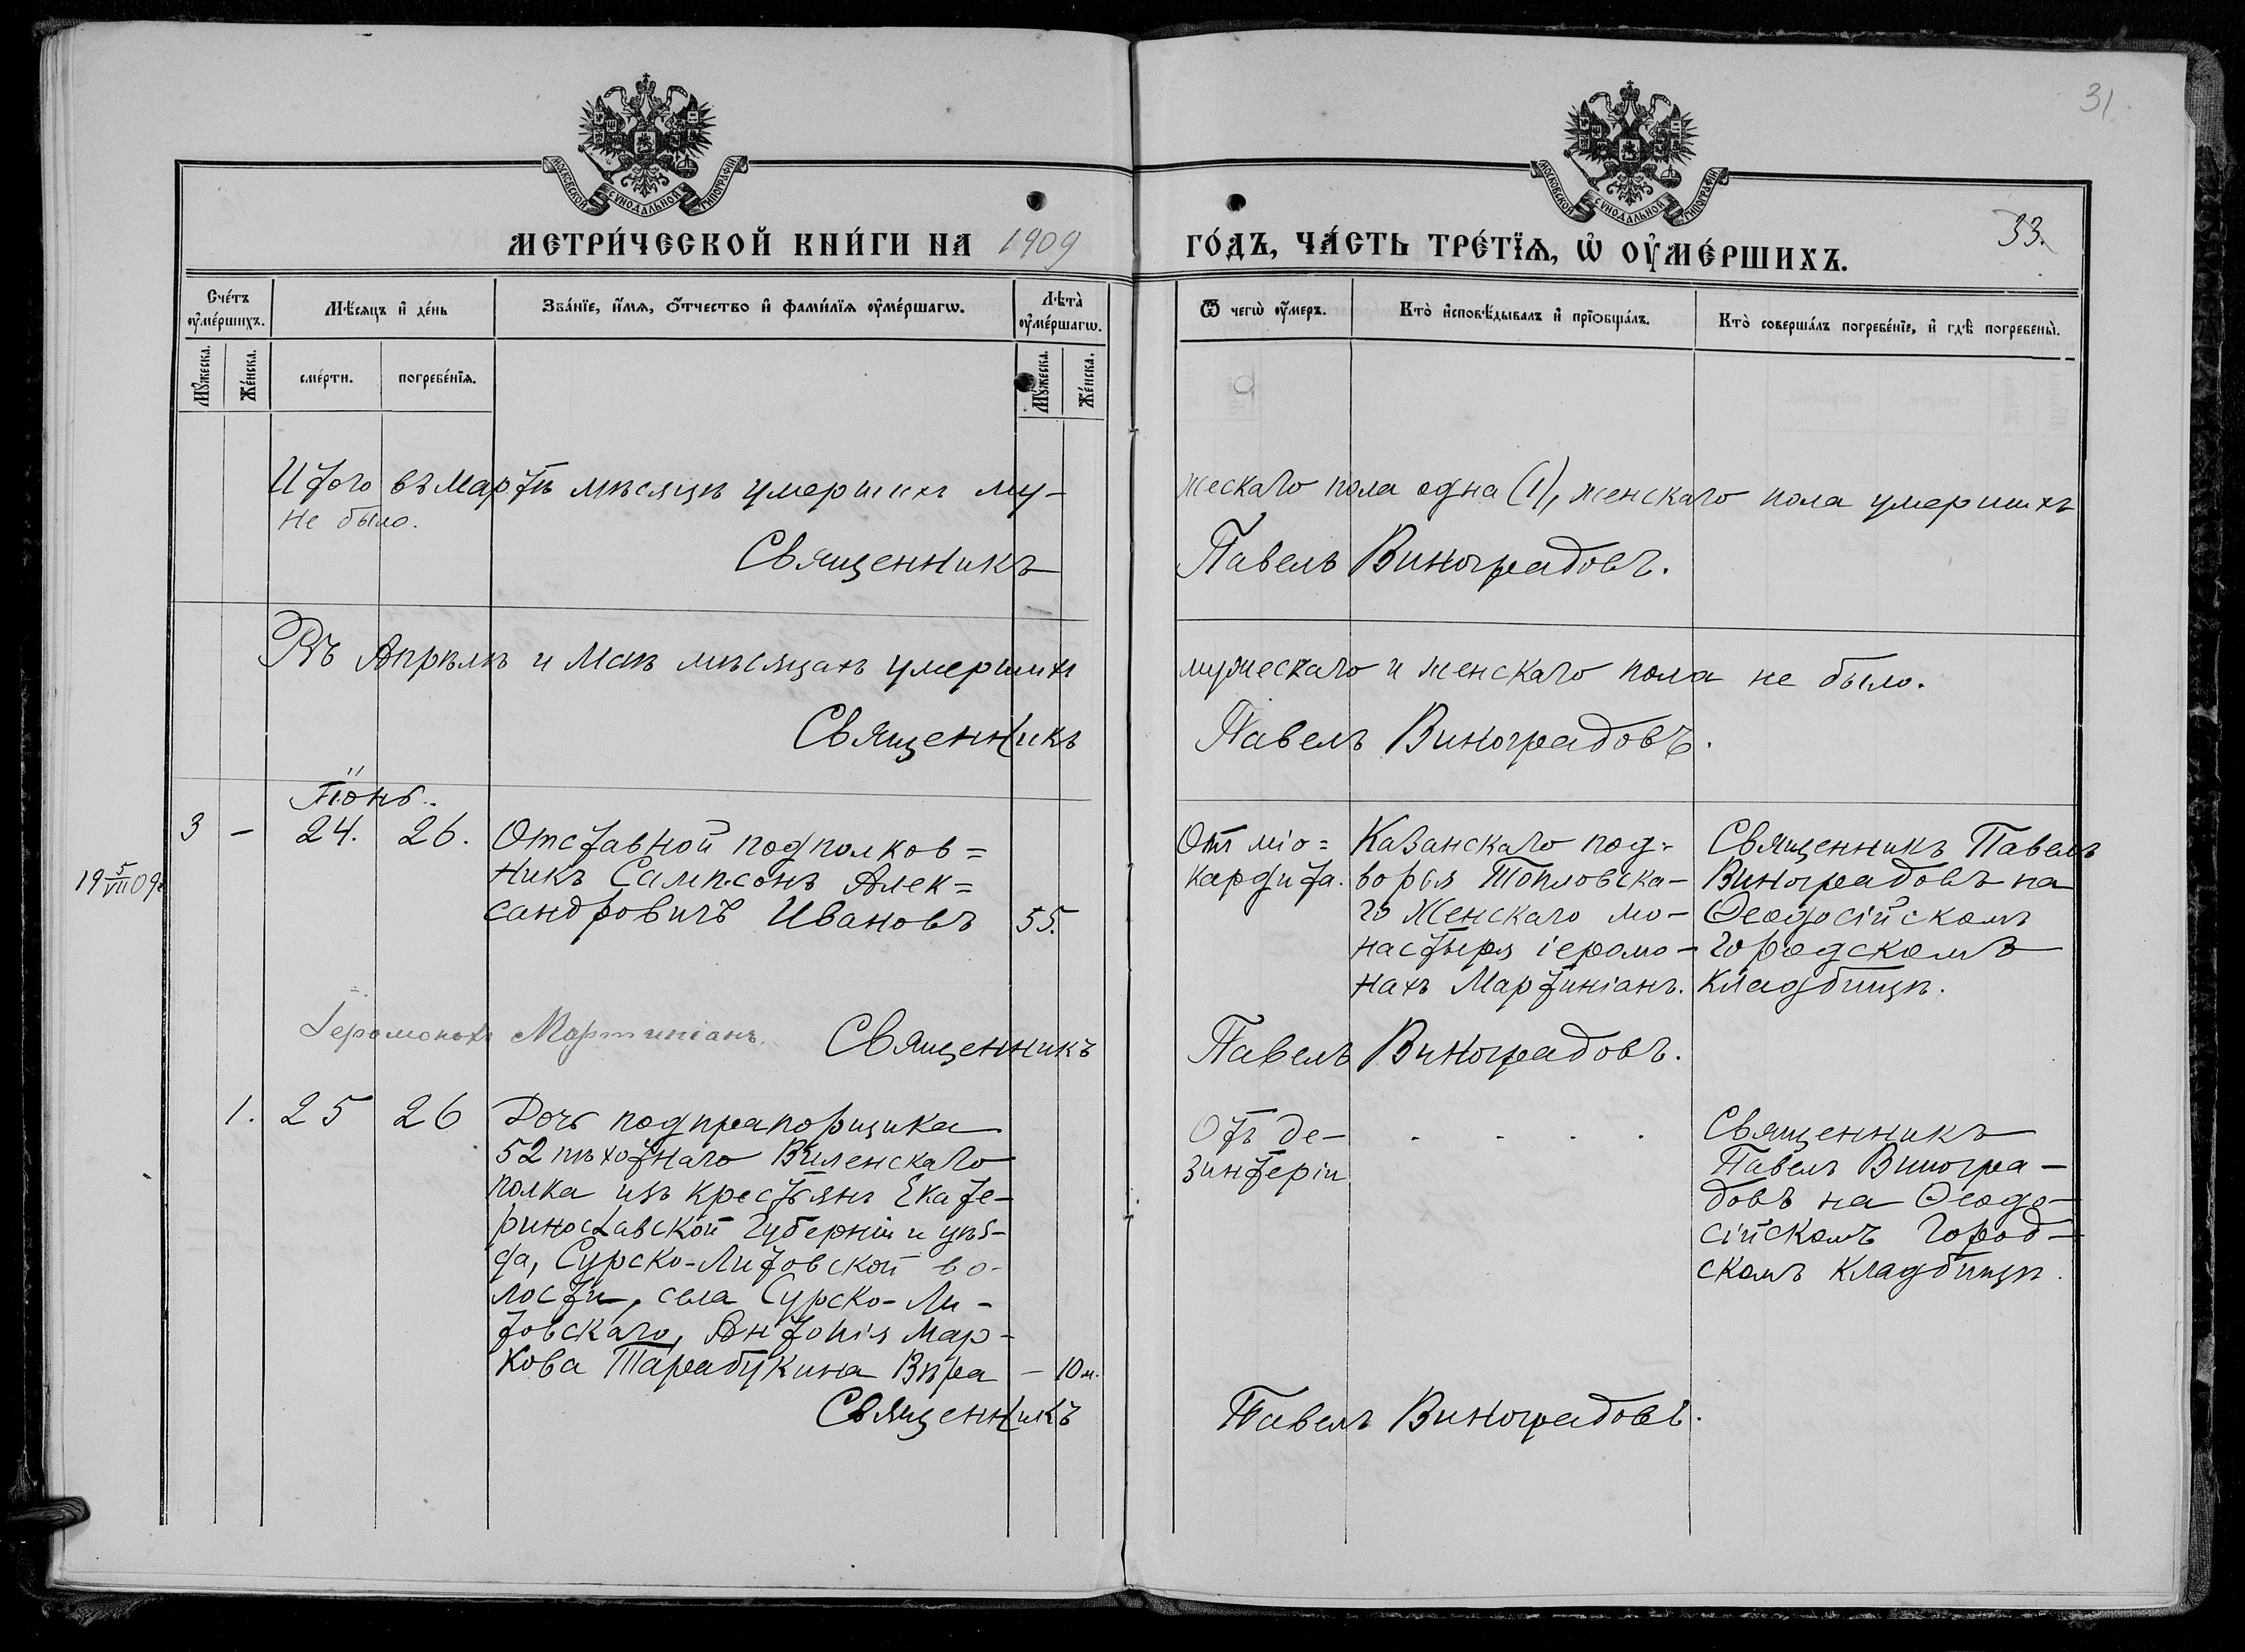 31.
МОСКОВСКОЙ СѴНОДАЛЬНОЙ ТИПОГРАФІИ
МОСКОВСКОЙ СѴНОДАЛЬНОЙ ТИПОГРАФІИ
МЕТРИ́ЧЕСКОЙ КНИ́ГИ НА 1909
ГО́ДЪ, ЧА́СТЬ ТРЕ́ТЇѦ, Ѡ҆ ОУ҆МЕ́РШИХЪ.
33.
Сче́тъ оу҆ме́ршихъ.
Мѣ́сѧцъ и҆ де́нь
Зва́нїе, и҆́мѧ, ѻ҆́тчество и҆ фами́лїѧ оу҆ме́ршагѡ.
Лѣта̀ оу҆ме́ршагѡ.
Ѿ чегѡ̀ оу҆́меръ.
Кто̀ и҆сповѣ́дывалъ и҆ прїѡбща́лъ.
Кто̀ соверша́лъ погребе́нїе, и҆ гдѣ̀ погребены̀.
Мꙋ́жеска.
Же́нска.
сме́рти.
погребе́нїѧ.
Мꙋ́жеска.
Же́нска.
Итого въ Мартѣ мѣсяцѣ умершихъ му-
жескаго пола одна (1), женскаго пола умершихъ
не было.
Священникъ
Павелъ Виноградовъ.
Въ Апрѣлѣ и Маѣ мѣсяцахъ умершихъ
мужескаго и женскаго пола не было.
Священникъ
Павелъ Виноградовъ.
Іюнь.
19 5/VII 09г.
3 – 24. 26.
Отставной подполков=
никъ Сампсонъ Алек=
сандровичъ Ивановъ 55.
Отъ міо=
кардита.
Казанскаго под-
ворья Топловска-
го Женскаго мо-
настыря іеромо-
нахъ Мартиніанъ.
Священникъ Павелъ
Виноградовъ на
Ѳеодосійскомъ
городскомъ
кладбищѣ.
Іеромонахъ Мартиніанъ.
Священникъ
Павелъ Виноградовъ.
1. 25 26
Дочь подпрапорщика
52 пѣхотнаго Виленскаго
полка изъ крестьянъ Екате-
ринославской губерніи и уѣз-
да, Сурско-Литовской во-
лости, села Сурско-Ли-
товскаго, Антонія Мар-
кова Тарабукина Вѣра – 10 м.
Отъ де-
зинтеріи
. . . .
Священникъ
Павелъ Виногра-
довъ на Ѳеодо-
сійскомъ город-
скомъ кладбищѣ.
Священникъ
Павелъ Виноградовъ.